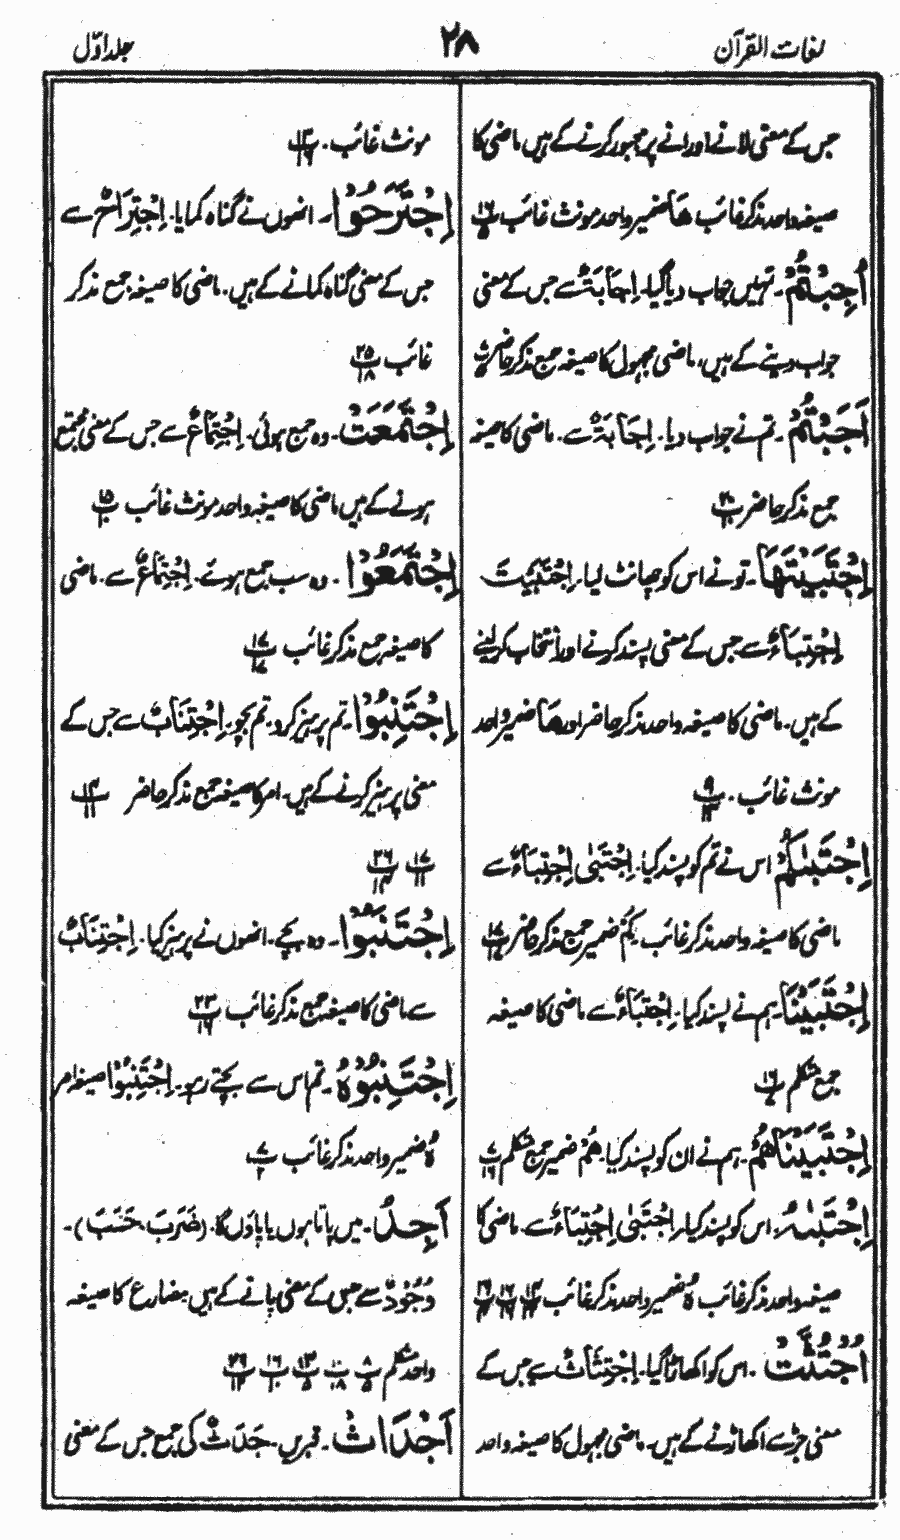 لغات القرآن
۲۸
جلد اوّل
جس کے معنی لانے اور انے پر مجبور کرنے کے ہیں ماضی کا
صیغہ واحد مذکر غائب ھَا ضمیر واحد مونث غائب پ
اُجِبْتُمْ۔ تمہیں جواب دیا گیا۔ اِجَابَۃٌ سے جس کے معنی
جواب دینے کے ہیں، ماضی مجہول کا صیغہ جمع مذکر حاضر
اَجَبْتُمْ۔ تم نے جواب دیا۔ اِجَابَۃٌ سے۔ ماضی کا صیغہ
جمع مذکر حاضر پ ۲۰
اِجْتَبَیْتَھَا۔ تو نے اس کو چھانٹ لیا۔ اِجْتَبَیْتَ
اِجْتِبَاءٌ سے جس کے معنی پسند کرنے اور انتخاب کر لینے
کے ہیں۔ ماضی کا صیغہ واحد مذکر حاضر اور ھَا ضمیر واحد
مونث غائب۔ پ ۹
اِجْتَبٰىکُمْ اس نے تم کو پسند کیا۔ اِجْتَبٰی اِجْتِبَاءٌ سے
ماضی کا صیغہ واحد مذکر غائب کُمْ ضمیر جمع مذکر حاضر پ ۱۷
اِجْتَبَیْنَا۔ ہم نے پسند کیا۔ اِجْتِبَاءٌ سے ماضی کا صیغہ
جمع متکلم پ ۱۶
اِجْتَبَیْنَاھُمْ۔ ہم نے ان کو پسند کیا۔ ھُمْ ضمیر جمع متکلم پ
اِجْتَبٰىہُ۔ اس کو پسند کیا۔ اِجْتَبٰی اِجْتِبَاءٌ سے۔ ماضی کا
صیغہ واحد مذکر غائب ہٗ ضمیر واحد مذکر غائب پ
اُجْتُثَّتْ۔ اس کو اکھاڑا گیا۔ اِجْتِثَاثٌ سے جس کے
معنی جڑ سے اکھاڑنے کے ہیں۔ ماضی مجہول کا صیغہ واحد
مونث غائب۔ پ ۱۳
اِجْتَرَحُوْا۔ انھوں نے گناہ کمایا۔ اِجْتِرَاحٌ سے
جس کے معنی گناہ کمانے کے ہیں۔ ماضی کا صیغہ جمع مذکر
غائب پ ۲۵ ۱۸
اِجْتَمَعَتْ۔ وہ جمع ہوئی۔ اِجْتِمَاعٌ سے جس کے معنی مجتمع
ہونے کے ہیں ماضی کا صیغہ واحد مونث غائب پ ۱۵
اِجْتَمَعُوْا۔ وہ سب جمع ہوئے۔ اِجْتِمَاعٌ سے۔ ماضی
کا صیغہ جمع مذکر غائب پ ۱۷
اِجْتَنِبُوْا۔ تم پرہیز کرو۔ تم بچو۔ اِجْتِنَابٌ سے جس کے
معنی پرہیز کرنے کے ہیں۔ امر کا صیغہ جمع مذکر حاضر پ ۱۱
پ ۱۷ ۱۱ پ ۲۶ ۱۴
اِجْتَنَبُوْا۔ وہ بچے۔ انھوں نے پرہیز کیا۔ اِجْتِنَابٌ
سے ماضی کا صیغہ جمع مذکر غائب پ ۲۳ ۱۶
اِجْتَنِبُوْہُ۔ تم اس سے بچتے رہو۔ اِجْتَنِبُوْا صیغہ امر
ہُ ضمیر واحد مذکر غائب پ ۷ ۲
اَجِدُ۔ میں پاتا ہوں یا پاؤں گا۔ (ضَرَبَ۔ حَسَبَ)۔
وُجُوْدٌ سے جس کے معنی پانے کے ہیں مضارع کا صیغہ
واحد متکلم پ ۸ ۵ پ ۱۰ ۱۸ پ ۱۳ ۵ پ ۱۶ ۱۰ پ ۲۹ ۱۲
اَجْدَاثِ۔ قبریں۔ جَدَثٌ کی جمع جس کے معنی